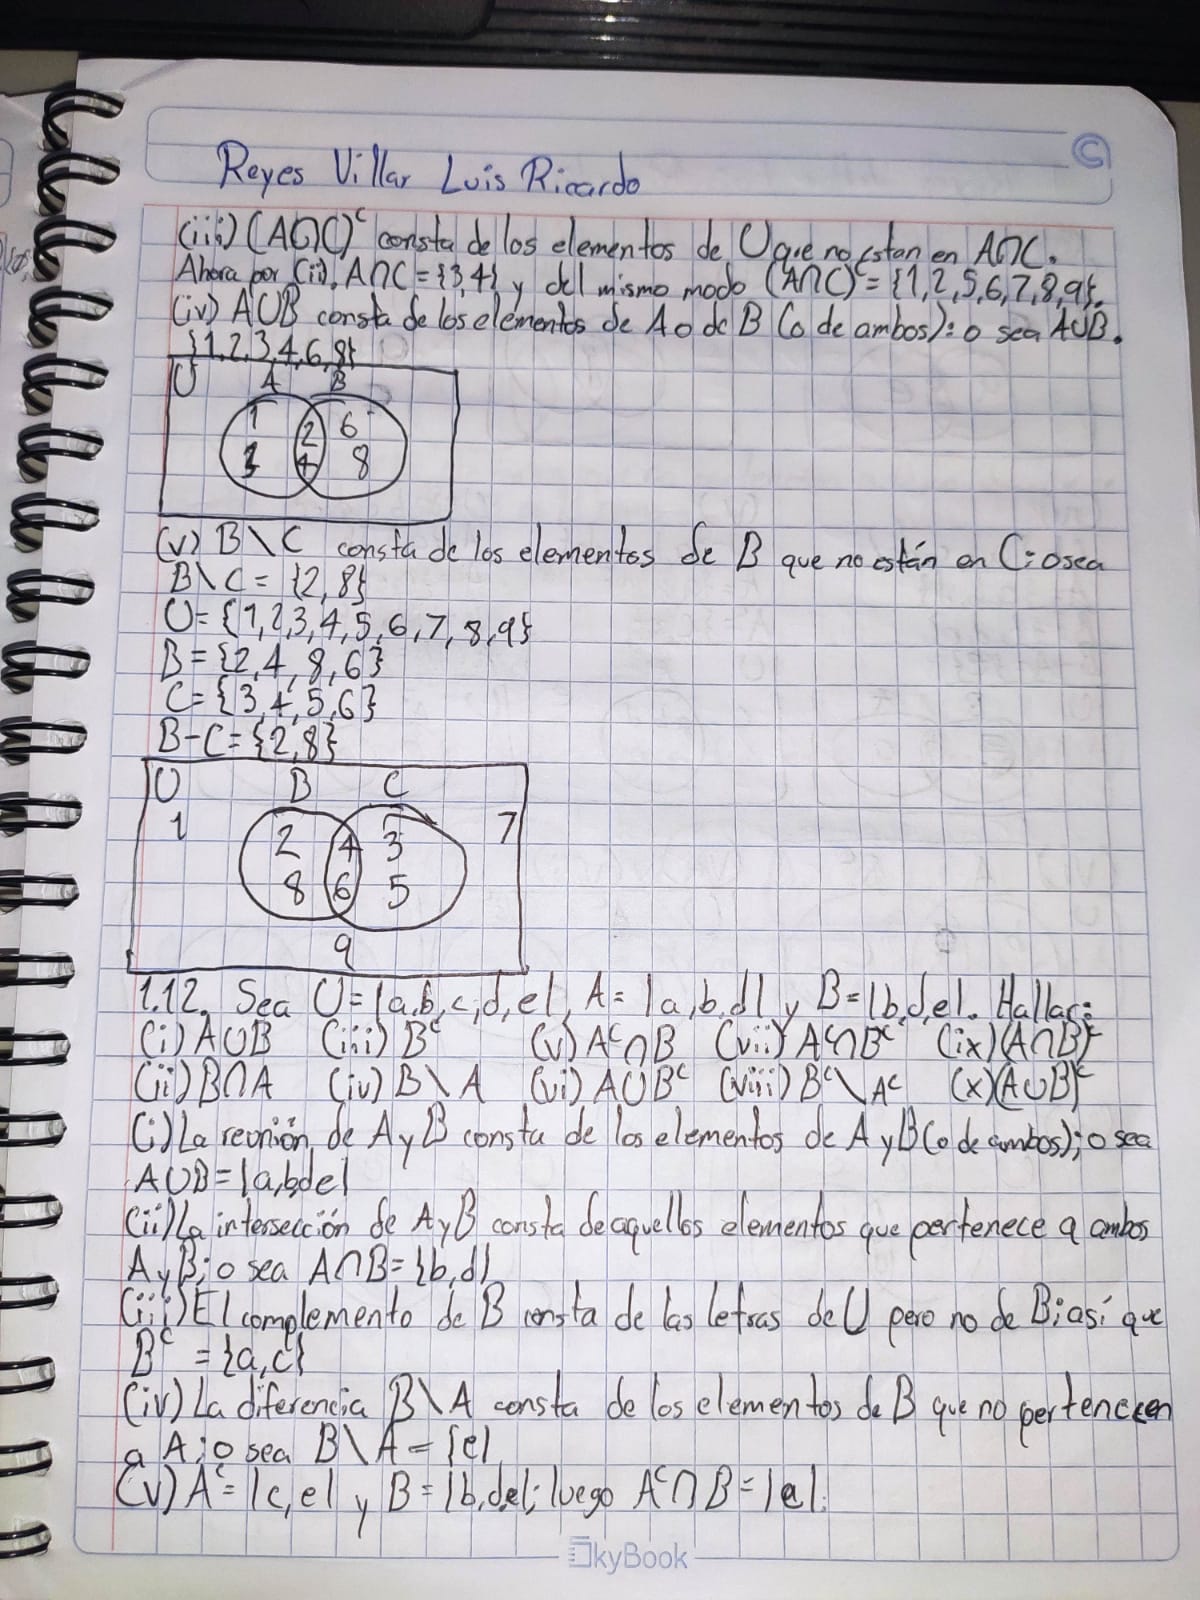 Reyes Villar Luis Ricardo
(iii) (A∩C)ᶜ consta de los elementos de U que no estan en A∩C.
Ahora por (ii), A∩C = {3,4} y del mismo modo (A∩C)ᶜ = {1,2,5,6,7,8,9}.
(iv) A∪B consta de los elementos de A o de B (o de ambos): o sea A∪B.
{1,2,3,4,6,8}
U A B
1 2 6
3 4 8
(v) B\C consta de los elementos de B que no están en C: osea
B\C = {2,8}
U = {1,2,3,4,5,6,7,8,9}
B = {2,4,8,6}
C = {3,4,5,6}
B-C = {2,8}
U B C
1 2 4 3 7
8 6 5
9
1.12. Sea U = |a,b,c,d,e|, A = |a,b,d| y B = |b,d,e|. Hallar:
(i) A∪B (iii) Bᶜ (v) Aᶜ∩B (vii) Aᶜ∩Bᶜ (ix) (A∩B)ᶜ
(ii) B∩A (iv) B\A (vi) A∪Bᶜ (viii) Bᶜ\Aᶜ (x) (A∪B)ᶜ
(i) La reunión de A y B consta de los elementos de A y B (o de ambos); o sea
A∪B = |a,b,d,e|
(ii) La intersección de A y B consta de aquellos elementos que pertenece a ambos
A y B; o sea A∩B = {b,d|
(iii) El complemento de B consta de las letras de U pero no de B; así que
Bᶜ = {a,c}
(iv) La diferencia B\A consta de los elementos de B que no pertenecen
a A; o sea B\A = {e|
(v) Aᶜ = |c,e| y B = |b,d,e|; luego Aᶜ∩B = |e|.
SkyBook